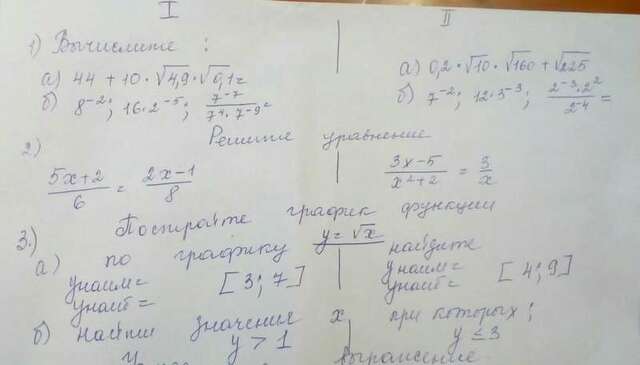 I II
1) Вычислите :
а) 44 + 10 · √4,9 · √0,1 = а) 0,2 · √10 · √160 + √225
б) 8⁻²; 16 · 2⁻⁵; 7⁻⁷/(7⁴ · 7⁻⁹) = б) 7⁻²; 12 · 3⁻³; (2⁻³ · 2²)/2⁻⁴ =
2) Решите уравнение
(5x+2)/6 = (2x−1)/8 (3x−5)/(x²+2) = 3/x
3.) Постройте график функции
y = √x
а) по графику найдите
yнаим = [3; 7] yнаим = [4; 9]
yнаиб = yнаиб =
б) найти значения x при которых :
y > 1 y ≤ 3
выражение